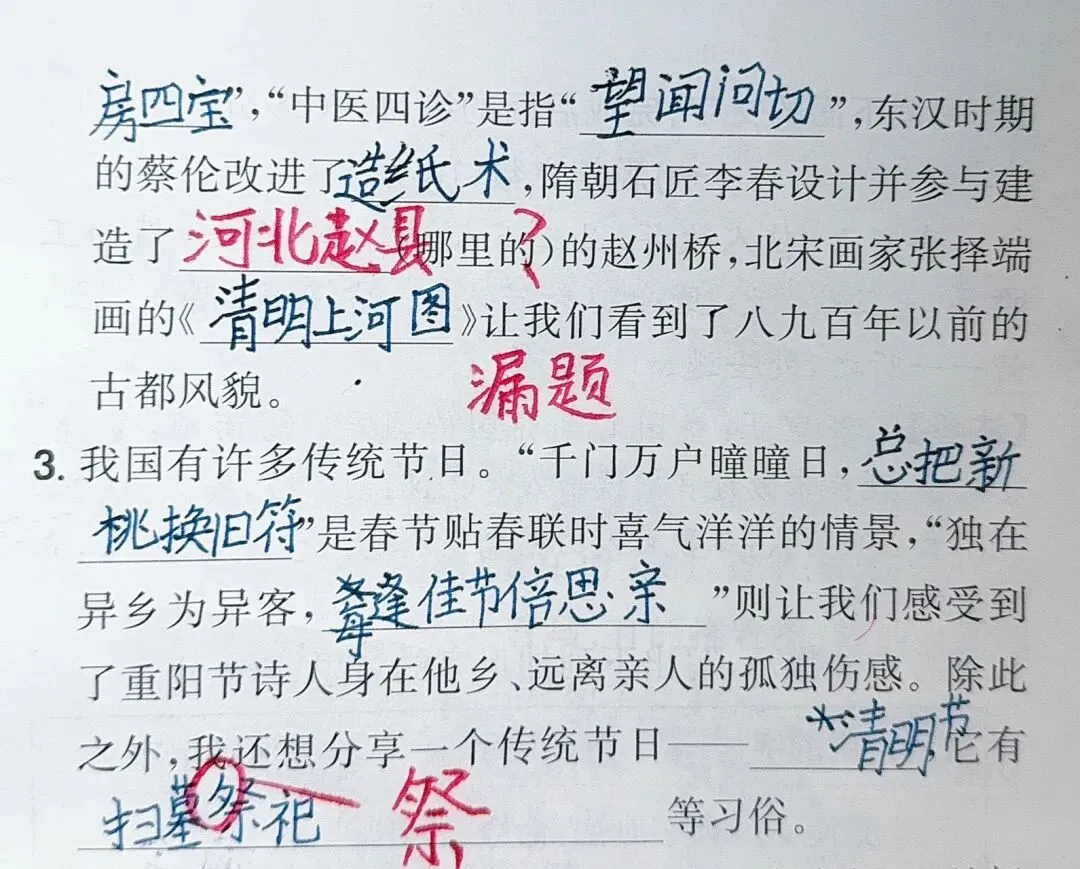 房四宝”,“中医四诊”是指“望闻问切”,东汉时期
的蔡伦改进了造纸术,隋朝石匠李春设计并参与建
造了河北赵县(哪里的)的赵州桥,北宋画家张择端
?
画的《清明上河图》让我们看到了八九百年以前的
古都风貌。
漏题
3. 我国有许多传统节日。“千门万户曈曈日,总把新
桃换旧符”是春节贴春联时喜气洋洋的情景,“独在
异乡为异客,每逢佳节倍思亲”则让我们感受到
了重阳节诗人身在他乡、远离亲人的孤独伤感。除此
之外,我还想分享一个传统节日——清明节,它有
扫墓祭祀等习俗。
祭